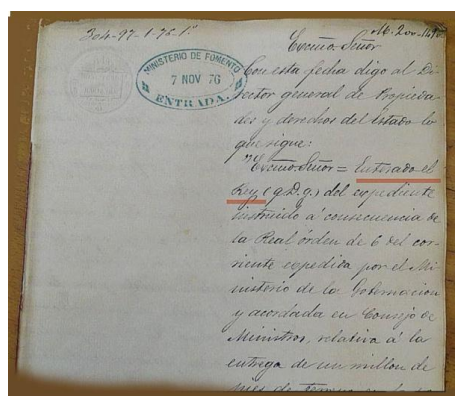 304-97-1-76-1º
Excmo. Señor
MINISTERIO DE FOMENTO
7 NOV 76
ENTRADA.
Con esta fecha digo al Di
rector general de Propieda
des y derechos del Estado lo
que sigue:
"Excmo. Señor = Enterado el
Rey (q. D. g.) del expediente
instruido á consecuencia de
la Real órden de 6 del cor-
riente expedida por el Mi
nisterio de la Gobernacion
y acordada en Consejo de
Ministros, relativa á la
entrega de un millon de